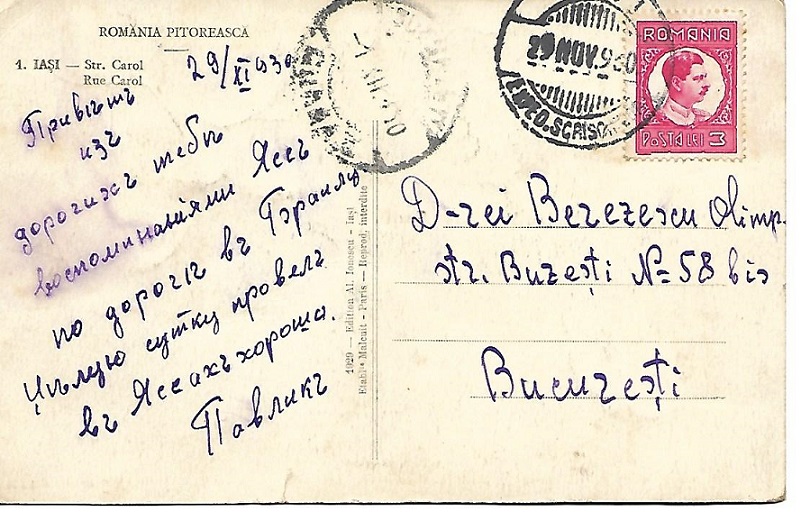 ROMÂNIA PITOREASCĂ
1. IAȘI — Str. Carol
Rue Carol
29/XI 1930
Привѣтъ
изъ
дорогихъ тебѣ
воспоминаніями Яссъ
по дорогѣ въ Браилу
Цѣлую сутку провелъ
въ Яссахъ хороша.
Павликъ
1929 — Edition Al. Ionescu - Iași
Etabl^ts Malcuit - Paris — Reprod. interdite
29 NOV. 930
EXPED. SCRISO
ROMANIA
POSTA LEI 3
D-rei Berezescu Olimp.
str. Buzești №=58 bis
București